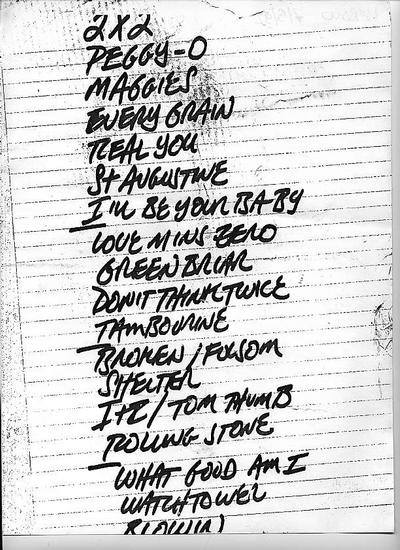 2X2
PEGGY-O
MAGGIES
EVERY GRAIN
REAL YOU
St AUGUSTINE
I'LL BE YOUR BABY
LOVE MINS ZERO
GREEN BRIAR
DON'T THINK TWICE
TAMBOURINE
BROKEN / FOLSOM
SHELTER
I+I / TOM THUMB
ROLLING STONE
WHAT GOOD AM I
WATCHTOWER
BLOWIN